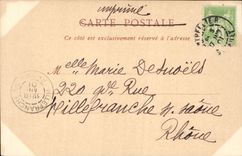 imprimé
CARTE POSTALE
Ce côté est exclusivement réservé à l'adresse
Melle Marie Desnoëls
220 rue
Villefranche s/ Saône
Rhône